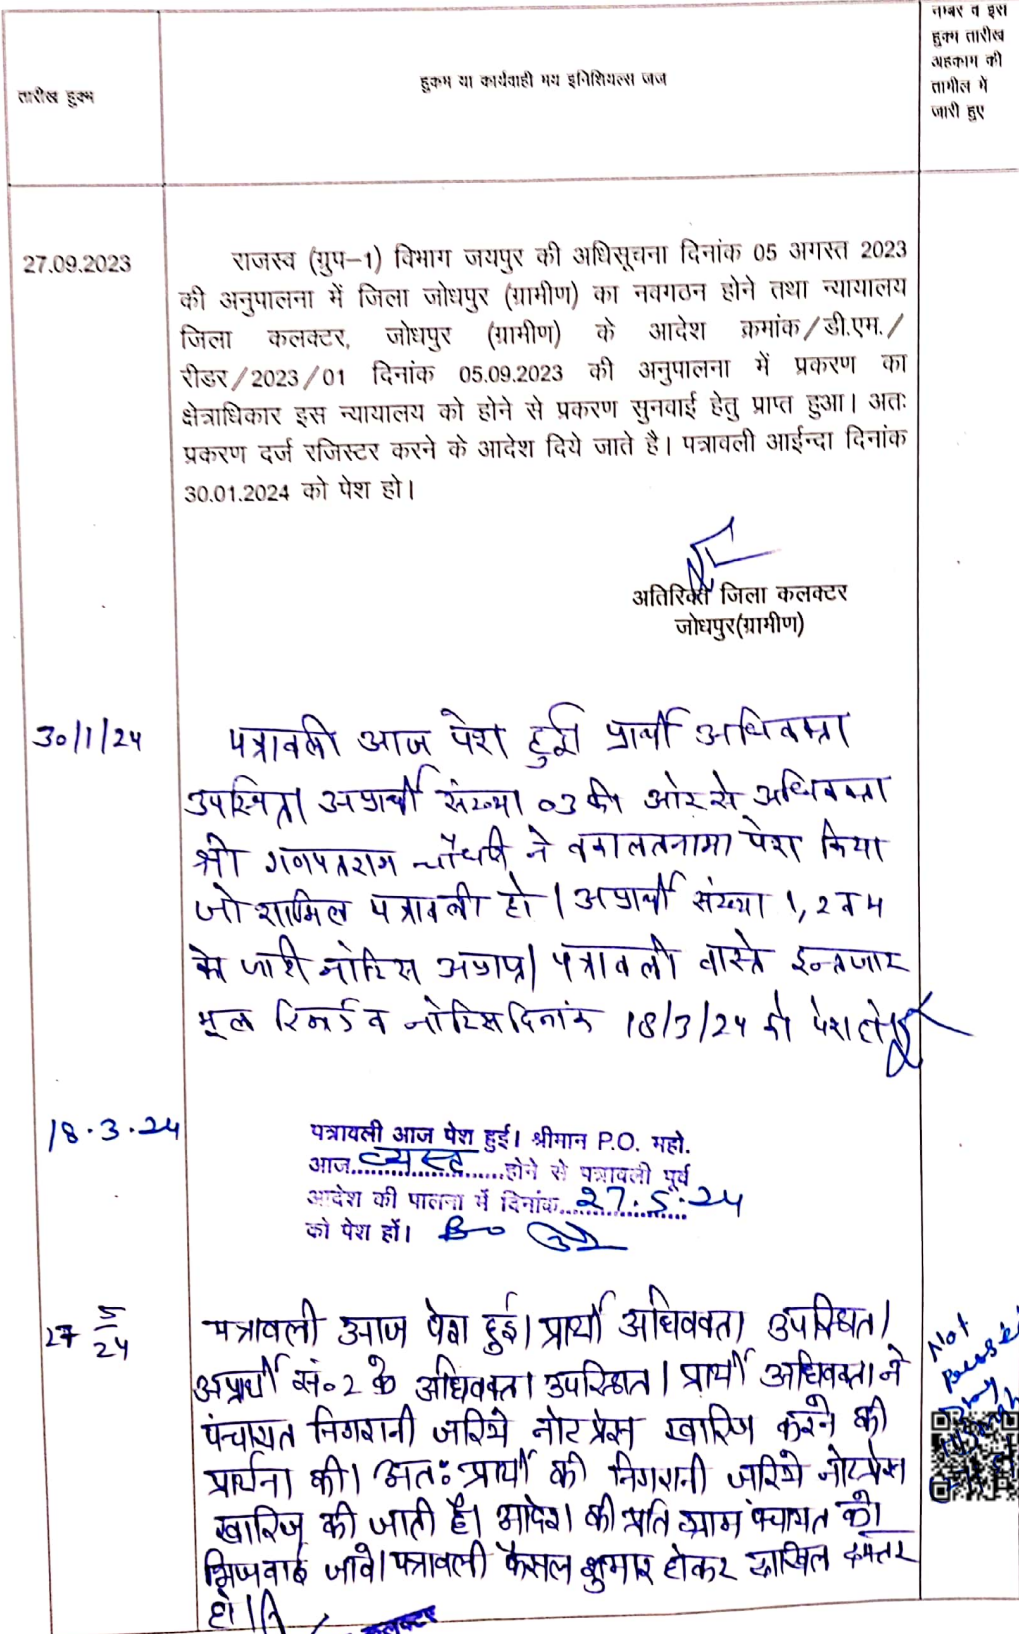 तारीख हुक्म
हुकम या कार्यवाही मय इनिशियल्स जज
नम्बर व इस
हुक्म तारीख
अहकाम की
तामील में
जारी हुए
27.09.2023
राजस्व (ग्रुप–1) विभाग जयपुर की अधिसूचना दिनांक 05 अगस्त 2023
की अनुपालना में जिला जोधपुर (ग्रामीण) का नवगठन होने तथा न्यायालय
जिला कलक्टर, जोधपुर (ग्रामीण) के आदेश क्रमांक/डी.एम./
रीडर/2023/01 दिनांक 05.09.2023 की अनुपालना में प्रकरण का
क्षेत्राधिकार इस न्यायालय को होने से प्रकरण सुनवाई हेतु प्राप्त हुआ। अतः
प्रकरण दर्ज रजिस्टर करने के आदेश दिये जाते है। पत्रावली आईन्दा दिनांक
30.01.2024 को पेश हो।
अतिरिक्त जिला कलक्टर
जोधपुर(ग्रामीण)
30/1/24
पत्रावली आज पेश हुई प्रार्थी अधिवक्ता
उपस्थित। अप्रार्थी संख्या 03 की ओर से अधिवक्ता
श्री गणपतराम चौधरी ने वकालतनामा पेश किया
जो शामिल पत्रावली हो। अप्रार्थी संख्या 1, 2 व 4
के जारी नोटिस अप्राप्त। पत्रावली वास्ते इन्तजार
मूल रिकार्ड व नोटिस दिनांक 18/3/24 को पेश हो
18.3.24
पत्रावली आज पेश हुई। श्रीमान P.O. महो.
आज व्यस्त होने से पत्रावली पूर्व
आदेश की पालना में दिनांक 27.5.24
को पेश हों।
27 5/24
पत्रावली आज पेश हुई। प्रार्थी अधिवक्ता उपस्थित।
अप्रार्थी सं॰ 2 के अधिवक्ता उपस्थित। प्रार्थी अधिवक्ता ने
पंचायत निगरानी जरिये नोट प्रेस खारिज करने की
प्रार्थना की। अतः प्रार्थी की निगरानी जरिये नोटप्रेस
खारिज की जाती है। आदेश की प्रति ग्राम पंचायत को
भिजवाई जावे। पत्रावली फैसल शुमार होकर दाखिल दफ्तर
हो।
Not
कलक्टर